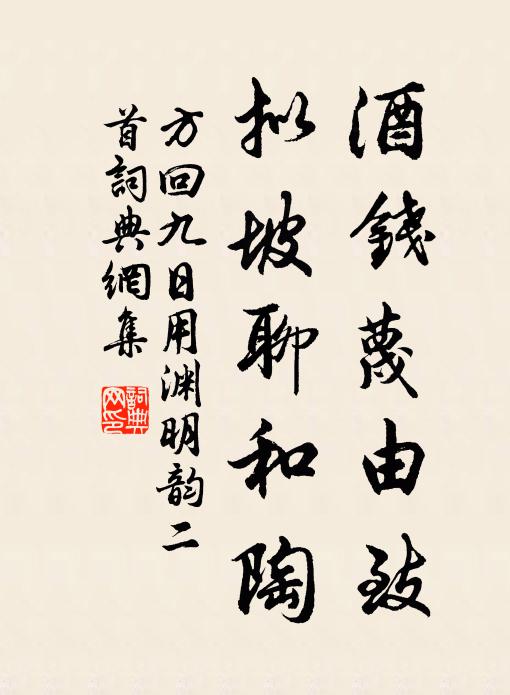 酒錢蔑由致
拟坡聊和陶
方回九日用渊明韵二
首詞典網集
詞典网印